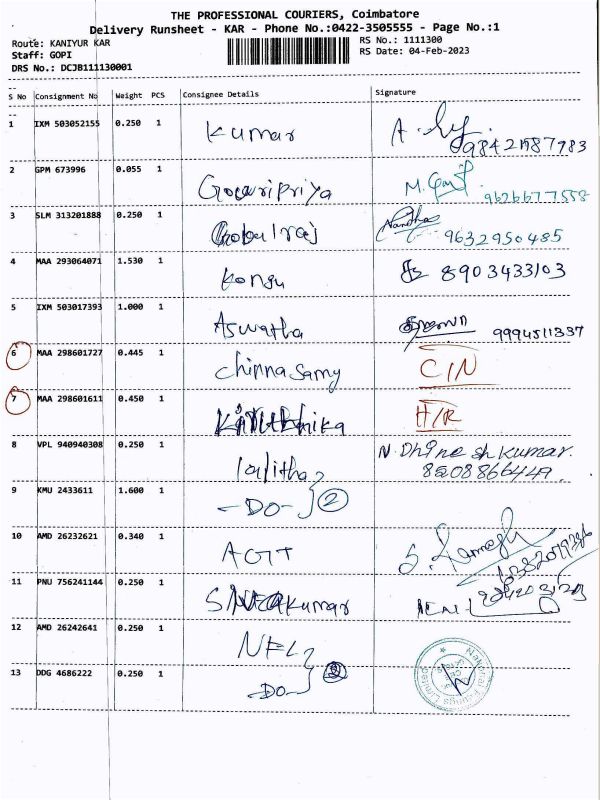 THE PROFESSIONAL COURIERS, Coimbatore
Delivery Runsheet - KAR - Phone No.:0422-3505555 - Page No.:1
Route: KANIYUR KAR
RS No.: 1111300
Staff: GOPI
RS Date: 04-Feb-2023
DRS No.: DCJB111130001
S No Consignment No Weight PCS Consignee Details Signature
1 IXM 503052155 0.250 1 Kumar
2 GPM 673996 0.055 1 Gowripriya 9626677558
3 SLM 313201888 0.250 1 Gobalraj Nandha 9632950485
4 MAA 293064071 1.530 1 Kongu 8903433103
5 IXM 503017393 1.000 1 Aswatha 9994511337
6 MAA 298601727 0.445 1 Chinnasamy C/N
7 MAA 298601611 0.450 1 H/R
8 VPL 940940308 0.250 1 lalitha N. Dhinesh kumar.
8508866449.
9 KMU 2433611 1.600 1 -DO- 2
10 AMD 26232621 0.340 1
11 PNU 756241144 0.250 1
12 AMD 26242641 0.250 1 NFL
13 DDG 4686222 0.250 1 -DO- 2